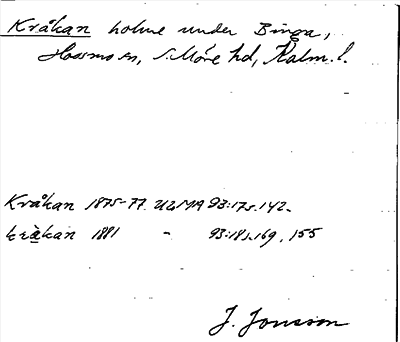 Kråkan holme under Binga,
Hossmo sn, S. Möre hd, Kalm. l.
Kråkan 1875-77. ULMA 93:17 s. 142.
kråkan 1881 - 93:18 s. 169, 155
J. Jonsson